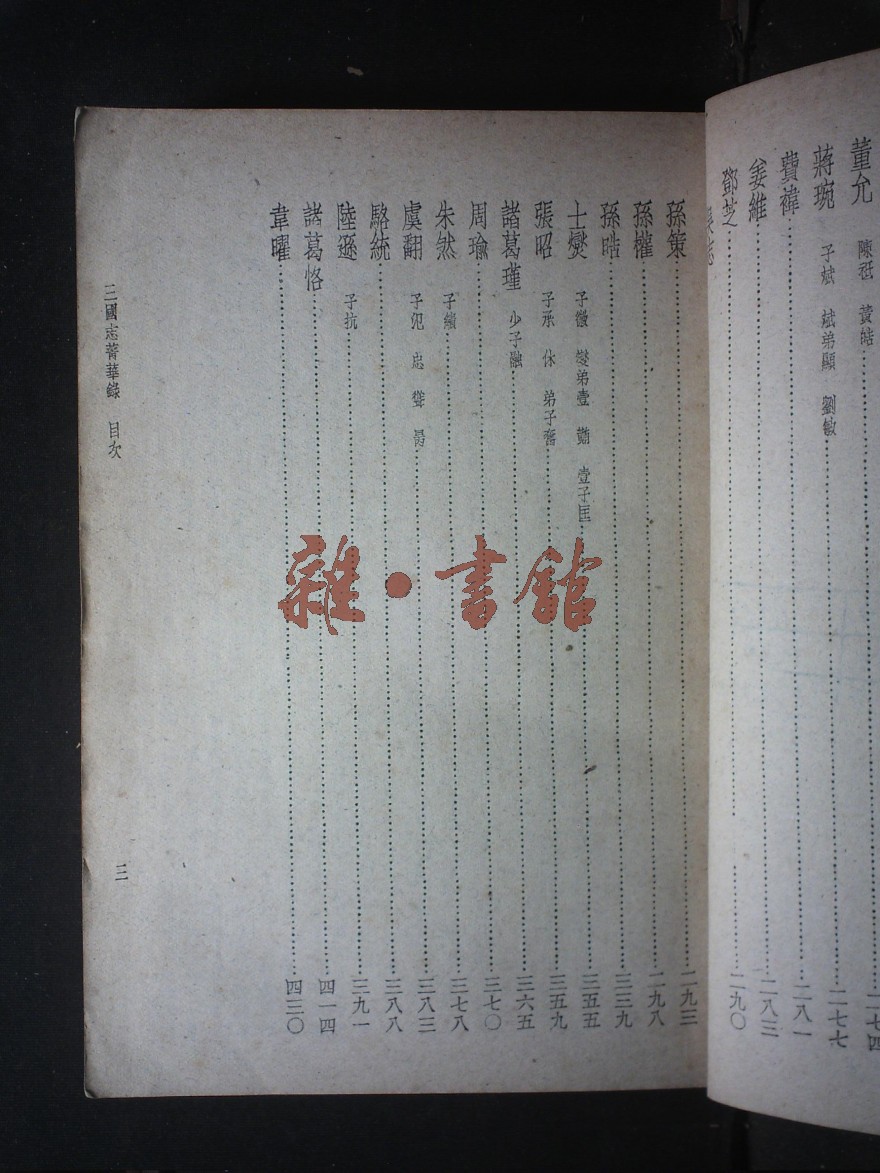 董允 陳祗 黃皓……二七四
蔣琬 子斌 斌弟顯 劉敏……二七七
費禕……二八一
姜維……二八三
鄧芝……二九〇
吳志
孫策……二九三
孫權……二九八
孫晧……三三九
士燮 子徽 燮弟壹 䵋 壹子匡……三五五
張昭 子承 休 弟子奮……三五九
諸葛瑾 少子融……三六五
周瑜……三七〇
朱然 子績……三七八
虞翻 子汜 忠 聳 昺……三八三
駱統……三八八
陸遜 子抗……三九一
諸葛恪……四一四
韋曜……四三〇
三國志菁華錄 目次
三
雜·書館